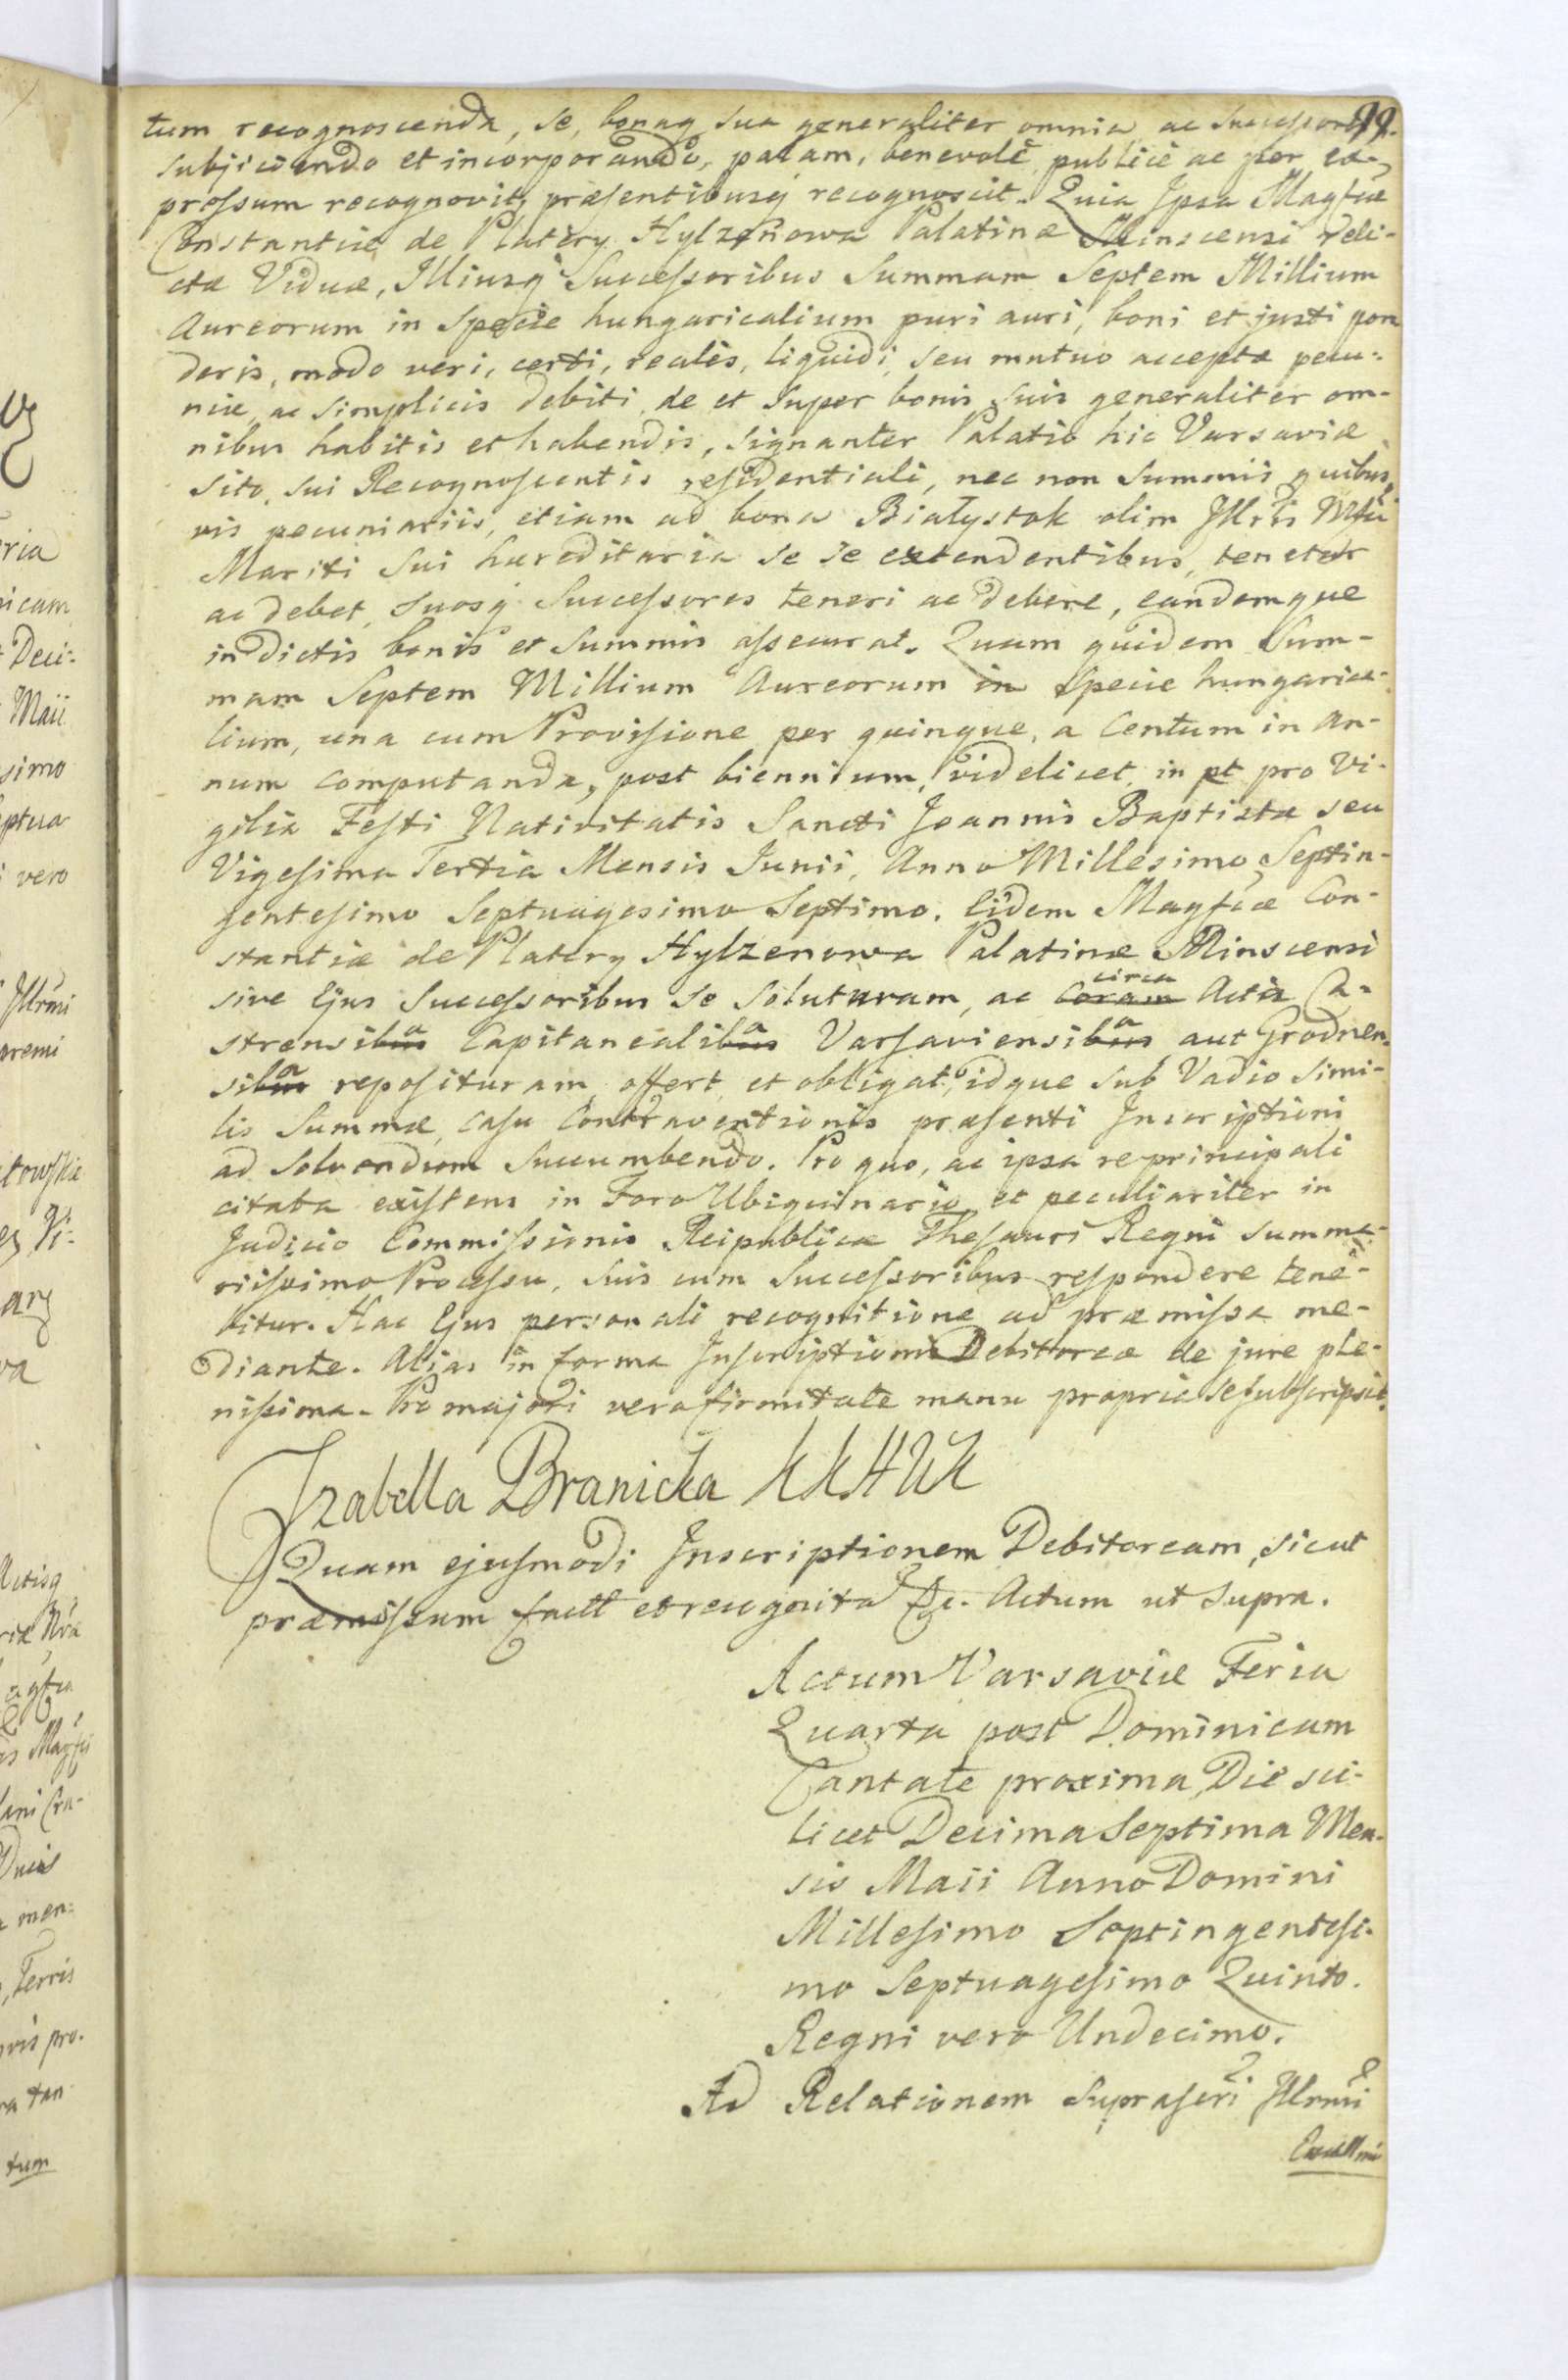 99.
tum recognoscenda, se, bonaq sua generaliter omnia ac Successores
subjiciendo et incorporando, palam, benevole, publicè ac per ex-
prefsum recognovit, præsentibusq recognoscit. Quia Ipsa Magfcæ
Constantiæ de Platery Hylzenowa Palatinæ Minscensi reli-
ctæ Viduæ, Illiusq Succefsoribus Summam Septem Millium
Aureorum in Specie hungaricalium puri auri, boni et justi pon
deris, modo veri, certi, realis, liquidi, seu mutuo acceptæ pecu-
niæ, ac Simplicis debiti, de et Super bonis Suis generaliter om-
nibus habitis et habendis, Signanter Palatio hic Varsaviæ
Sito, Sui Recognofcentis refidentiali, nec non Summis quibus
vis pecuniariis, etiam ad bona Białystok olim Illris Mfci
Mariti Sui hæreditaria se se extendentibus, tenetur
ac debet, Suosq Succefsores teneri ac debere, eandemque
in dictis bonis et Summis afsecurat. Quam quidem Sum-
mam Septem Millium Aureorum in Specie hungarica-
lium, una cum Provifione per quinque, a Centum in an-
num computanda, post biennium, videlicet, in et pro Vi-
gilia Fefti Nativitatis Sancti Joannis Baptistæ seu
Vigefima Tertia Mensis Junii, Anno Millesimo Septin-
gentefimo Septuagesimo Septimo. Eidem Magfcæ Con-
stantiæ de Platery Hylzenowa Palatinæ Minscensi
circa
sive Ejus Succefsoribus se Soluturam, ac Coram Actis Ca-
strensibus Capitanealibus Varfaviensibus aut Grodnen-
sibus reposituram offert et obligat, idque Sub Vadio Simi-
lis Summæ, Cafu Contraventionis præfenti Inscriptioni
ad Solvendum Succumbendo. Pro quo, ac ipsa re principali
citata exiftens in Foro Ubiquinario et peculiariter in
Judicio Commifsionis Reipublicæ Thefauri Regni Summa-
riifsimo Procefsu, Suis cum Succefsoribus refpondere tene-
bitur. Hac Ejus personali recognitione ad præmifsa me-
diante. Alias in forma Infcriptionis Debitoreæ de jure ple-
nifsima. Pro majori vero firmitate manu propria se fubfcripsit.
Izabella Branicka K K H W K
Quam ejufmodi Inscriptionem Debitoream, sicut
præmifsum factt et recognita Etc. Actum ut Supra.
Actum Varsaviæ Feria
Quarta post Dominicam
Cantate proxima, Die sci-
licet Decima Septima Men-
sis Maii Anno Domini
Millefimo Septingentefi-
mo Septuagefimo Quinto.
Regni vero Undecimo.
Ad Relationem Suprafcri Illrmi
Excellmi